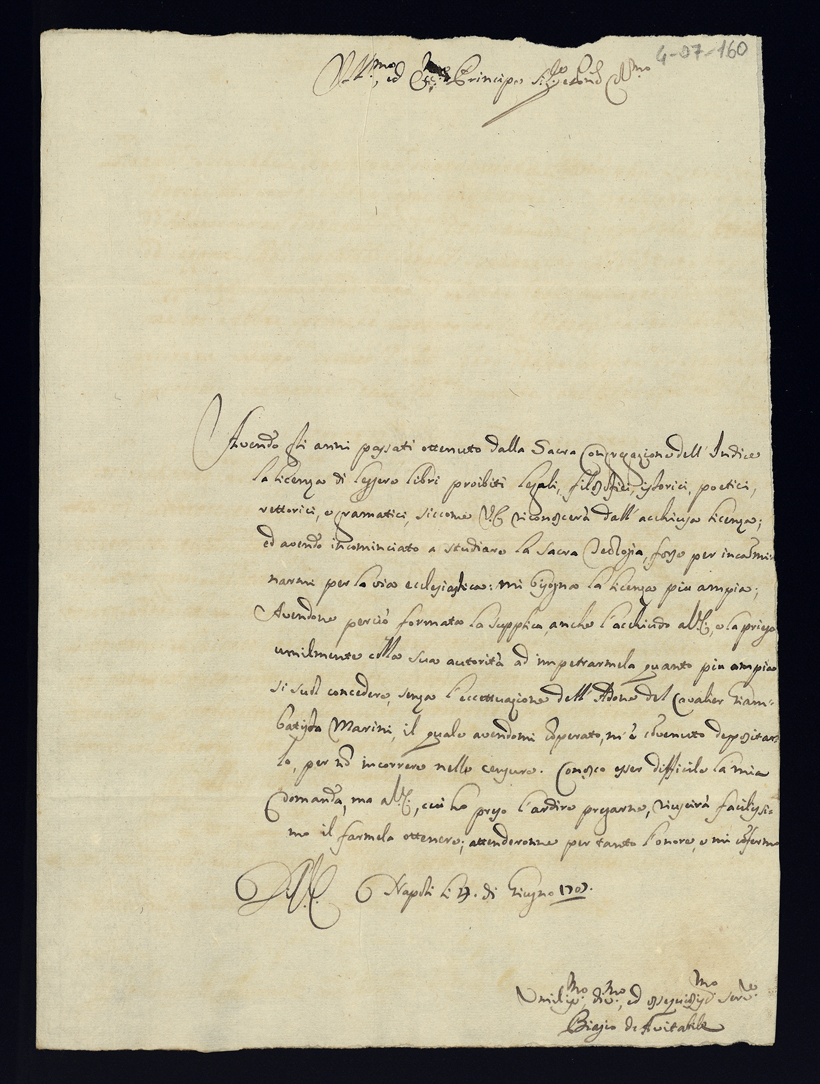 4-07-160
Ill.mo, ed Ecc.mo Principe Sig.re e Pad.ne Col.mo
Avendo gli anni passati ottenuto dalla Sacra Congregazione dell' Indice
la licenza di leggere libri proibiti legali, filosofici, istorici, poetici,
rettorici, e gramatici, siccome V.E. riconoscerà dall' acchiusa licenza;
ed avendo incominciato a studiare la Sacra Teologia, forse per incami-
narmi per la via ecclesiastica: mi bisogna la licenza piu ampia;
Avendone perciò formata la supplica, anche l'acchiudo a V.E., e la priego
umilmente colla sua autorità ad impetrarmela quanto piu ampia
si suol concedere, senza l'eccettuazione dell' Adone del Cavalier Giam-
batista Marini, il quale avendomi comperato, m' è convenuto depositar-
lo, per non incorrere nelle censure. Conosco esser difficile la mia
domanda, ma a V.E., cui ho preso l'ardire pregarne, riuscirà facilissi-
mo il farmela ottenere; attenderonne per tanto l'onore, e mi confermo
D.V.E. Napoli li di Giugno 170
Umiliss.mo, div.mo, ed ossequiosiss.mo serv.re
Biagio de Avitabile